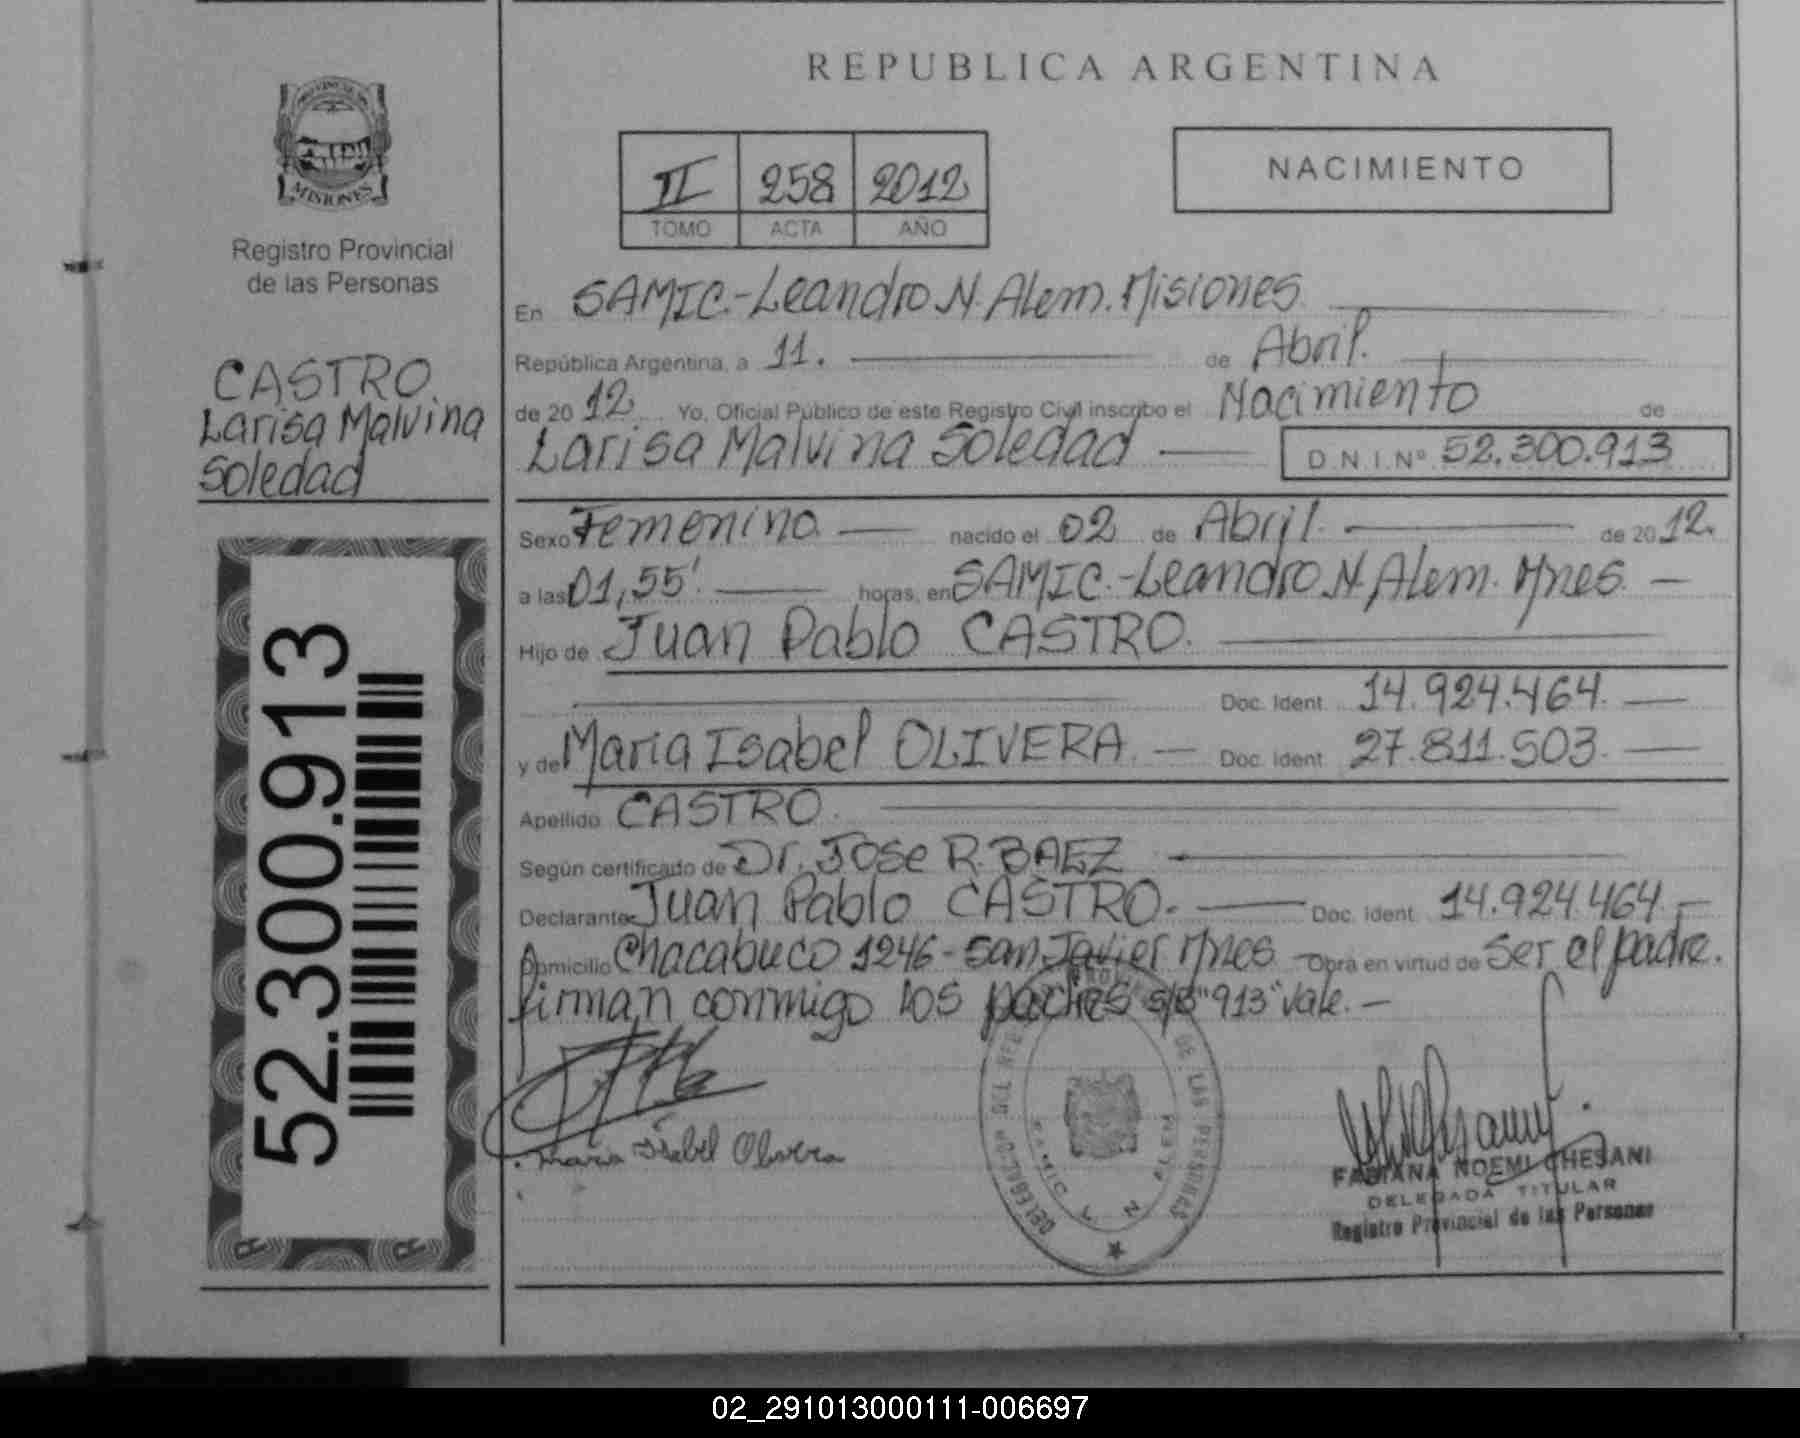 REPUBLICA ARGENTINA
MISIONES
Registro Provincial
de las Personas
CASTRO
Larisa Malvina
Soledad
52.300.913
II 258 2012
TOMO ACTA AÑO
NACIMIENTO
En SAMIC.-Leandro N. Alem. Misiones
República Argentina, a 11. de Abril.
de 2012 Yo, Oficial Público de este Registro Civil inscribo el Nacimiento de
Larisa Malvina Soledad D N I Nº 52.300.913
Sexo Femenino nacido el 02 de Abril. de 2012.
a las 01,55' horas, en SAMIC.-Leandro N. Alem. Mnes.
Hijo de Juan Pablo CASTRO.
Doc. Ident. 14.924.464.
y de Maria Isabel OLIVERA. Doc. Ident. 27.811.503.
Apellido CASTRO.
Según certificado de Dr. Jose R. BAEZ
Declarante Juan Pablo CASTRO. Doc. Ident. 14.924.464.
Domicilio Chacabuco 1246 - San Javier Mnes Obra en virtud de Ser el padre.
firman conmigo los padres s/B "913" Vale.
Maria Isabel Olivera
DE LAS PERSONAS
FABIANA NOEMI CHESANI
DELEGADA TITULAR
Registro Provincial de las Personas
02_291013000111-006697